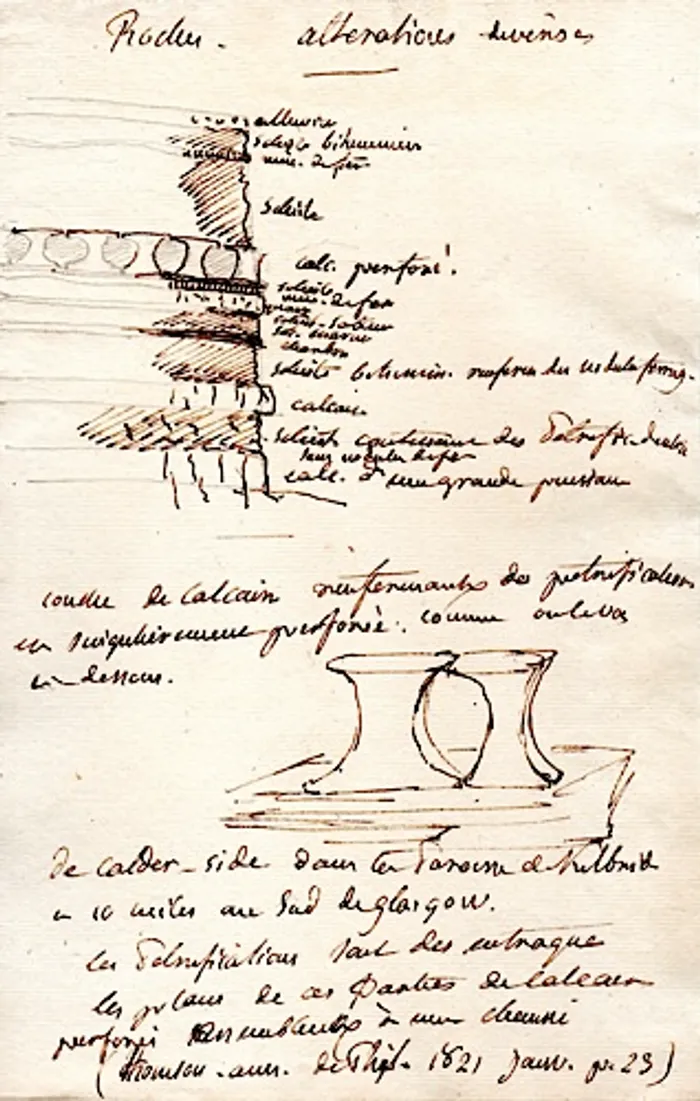 Roches. alterations diverses
alluvion
schiste bitumineux
mine. de fer
schiste
calc. perforé.
schiste
mine. de fer
schiste
charbon
schiste bitumin. renferm. des nodules ferrug.
calcaire
schiste contenant des
sans nodules de fer
calc. d'une grande puissance
couche de calcaire renfermant des petrifications
et singulièrement perforée. comme on le voit
ci-dessous.
De calder-side dans la Paroisse de Kilbride
a 10 milles au Sud de glasgow.
les Petrifications sont des entroques
les plans de ces Parties de calcaire
perforées Ressemblent à une cheminée
(Thomson. ann. de Phil. 1821 Janv. p. 23)